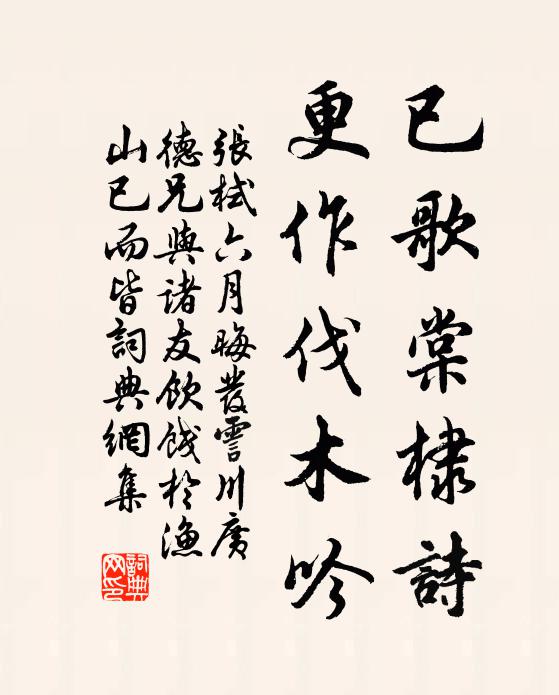 已歌棠棣詩
更作伐木吟
張栻六月晦發霅川廣
德兄與諸友飲餞於漁
山已而皆詞典網集
詞典
网印